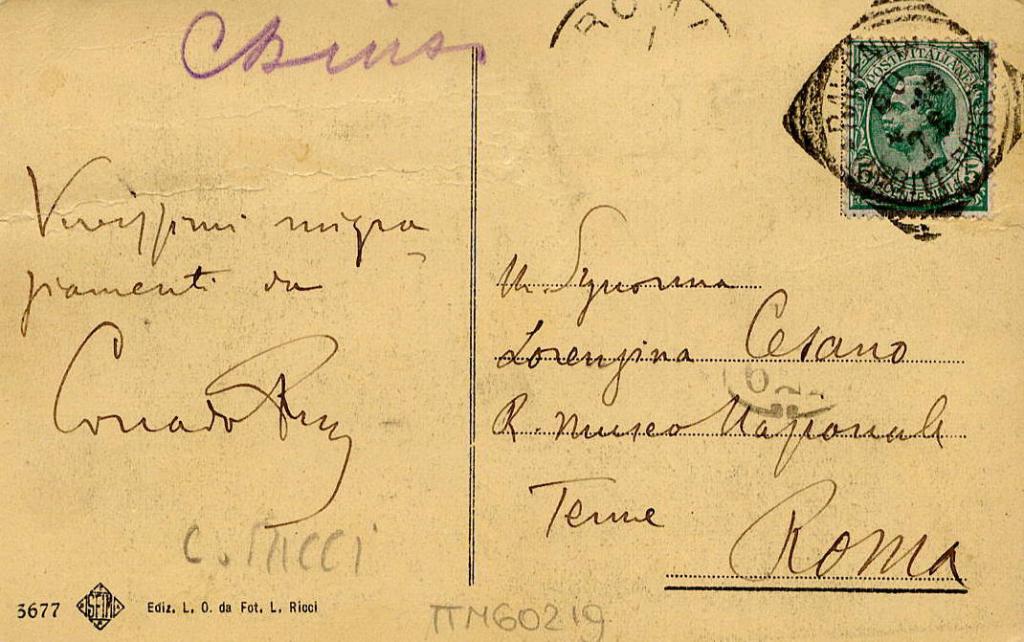 Chiuso
ROMA
POSTE ITALIANE
Vivissimi ringra
ziamenti da
Corrado Ricci
C. Ricci
3677 Ediz. L. O. da Fot. L. Ricci
Signorina
Lorenzina Cesano
R. Museo Nazionale
Terme
Roma
TTM60219